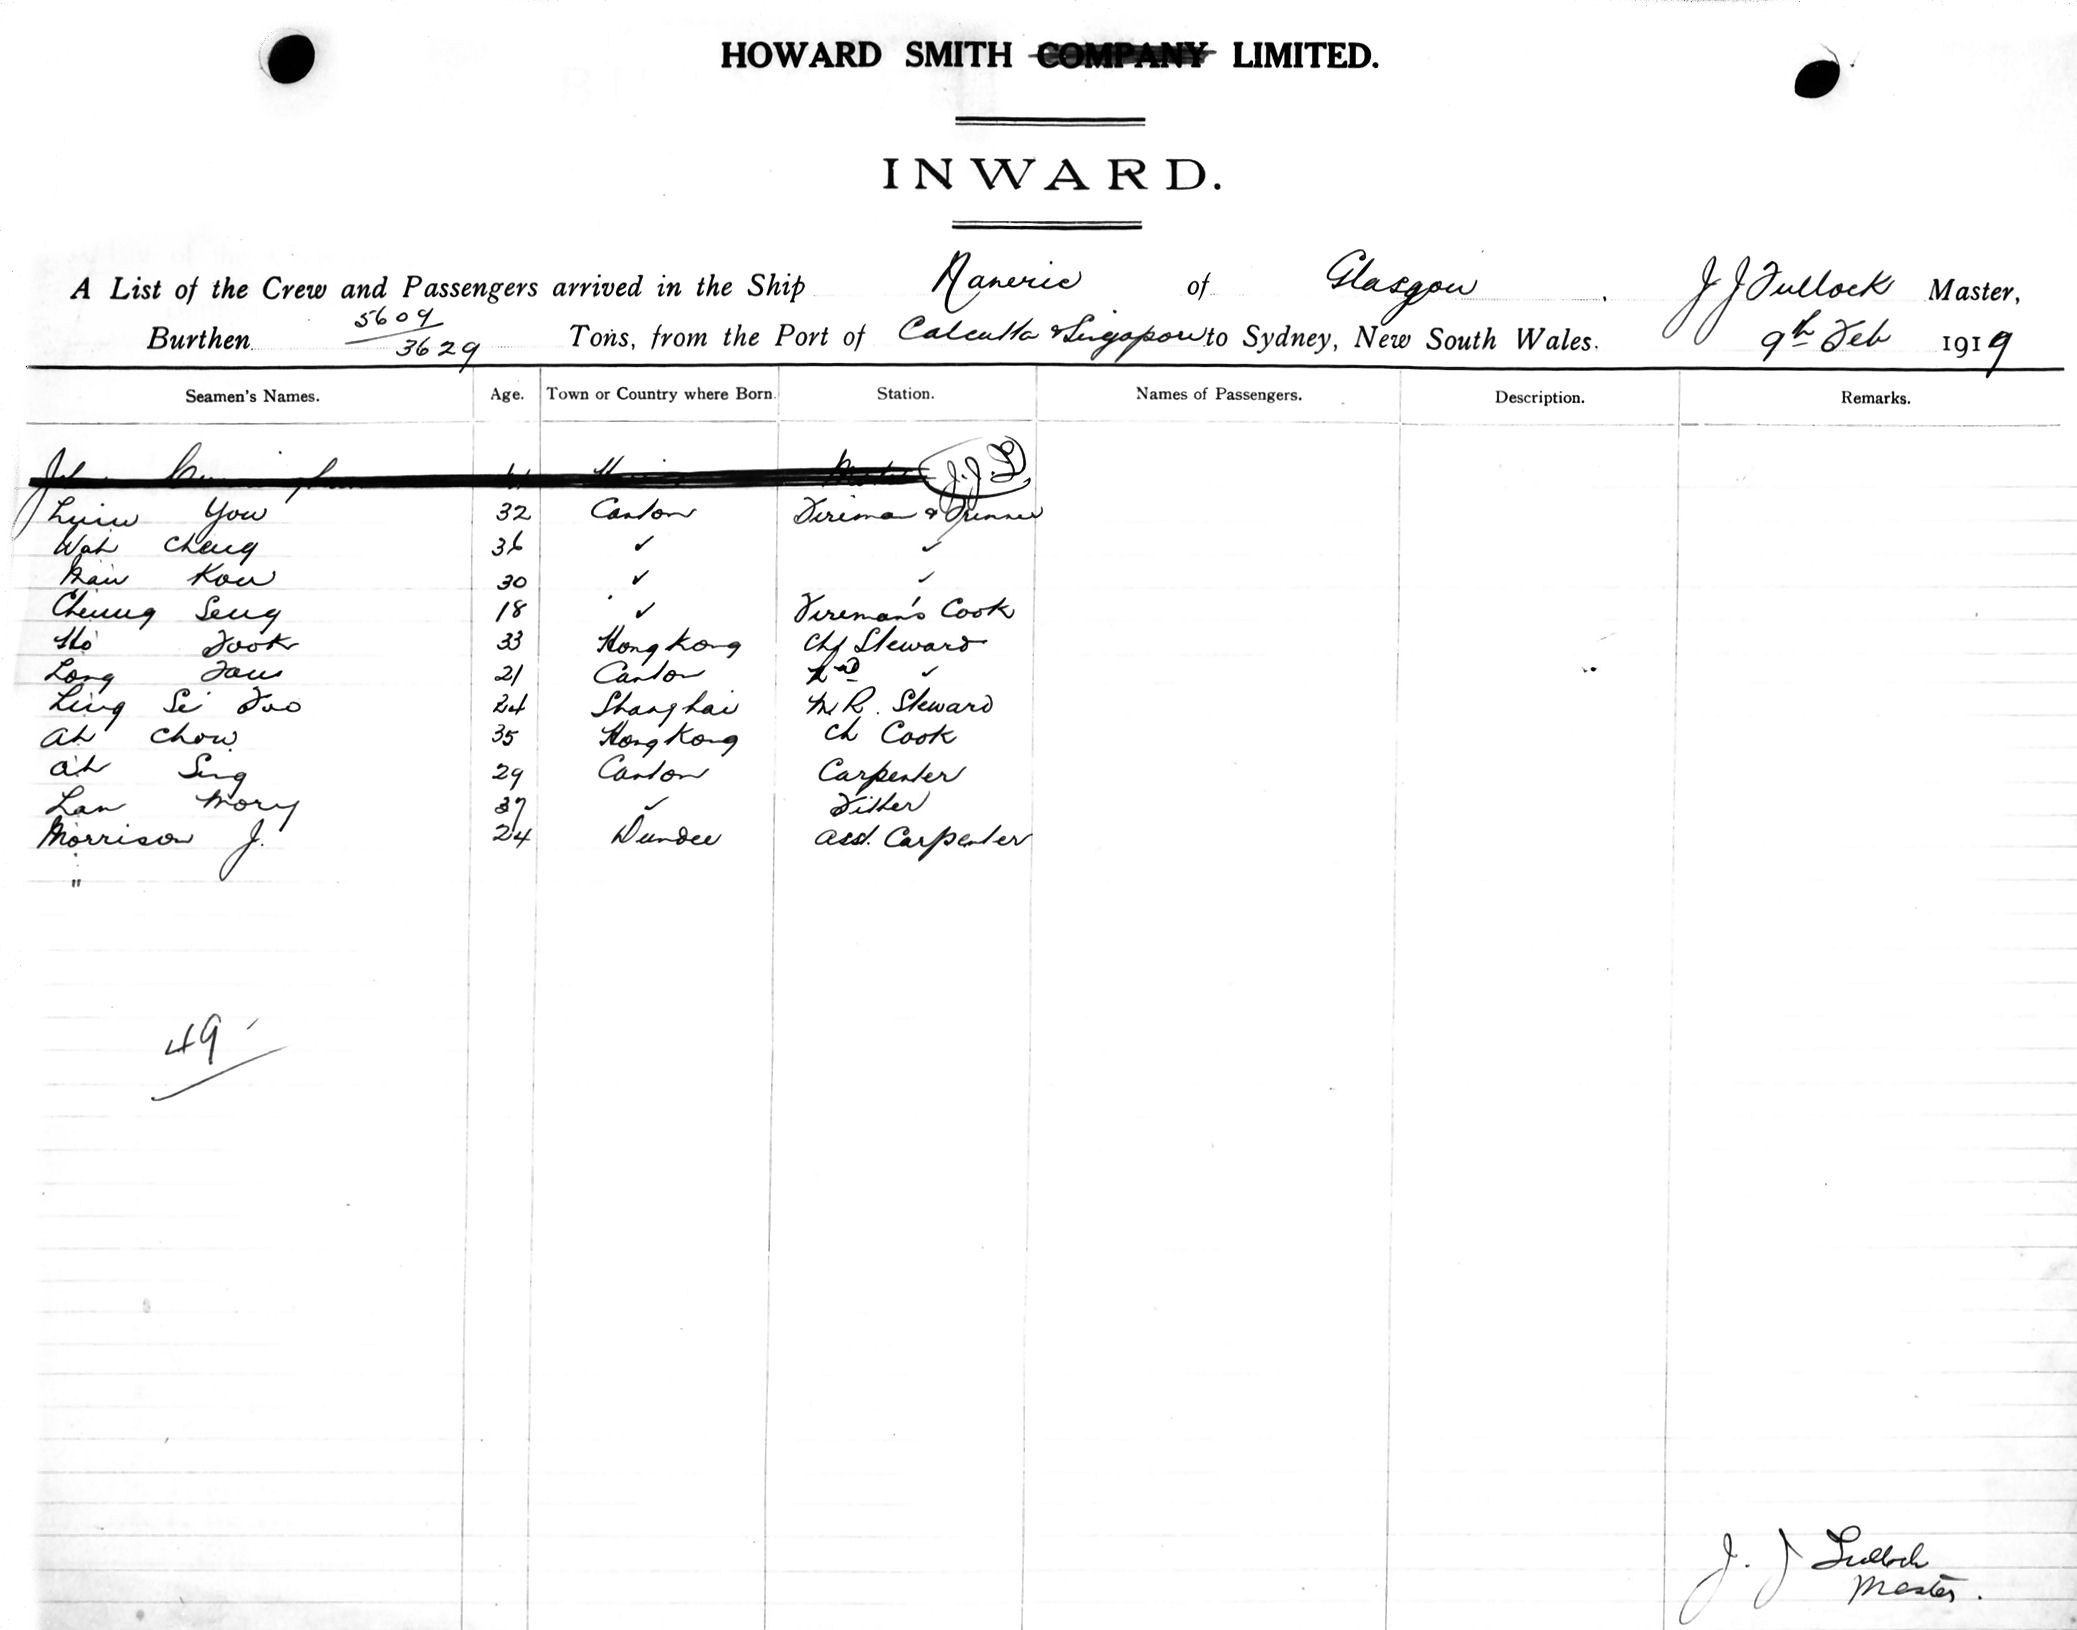 HOWARD SMITH COMPANY LIMITED.
INWARD.
A List of the Crew and Passengers arrived in the Ship Raneric of Glasgow. J J Tullock Master,
Burthen 5609/3629 Tons, from the Port of Calcutta & Singapore to Sydney, New South Wales. 9th Feb 1919
Seamen's Names. Age. Town or Country where Born. Station. Names of Passengers. Description. Remarks.
John J.J.T.
You 32 Canton Fireman & Trimmer
Wah Cheng 36 ✓ ✓
Kow 30 ✓ ✓
Cheung Seng 18 ✓ Fireman's Cook
Ho Fook 33 Hong Kong Chf Steward
Long 21 Canton 2nd ✓
Ling Si Foo 24 Shanghai M.R. Steward
Ah Chow 35 Hong Kong Ch Cook
Ah Sing 29 Canton Carpenter
Lan Mory 37 ✓ Fitter
Morrison J. 24 Dundee Asst. Carpenter
"
49
J. J Tulloch
Master.